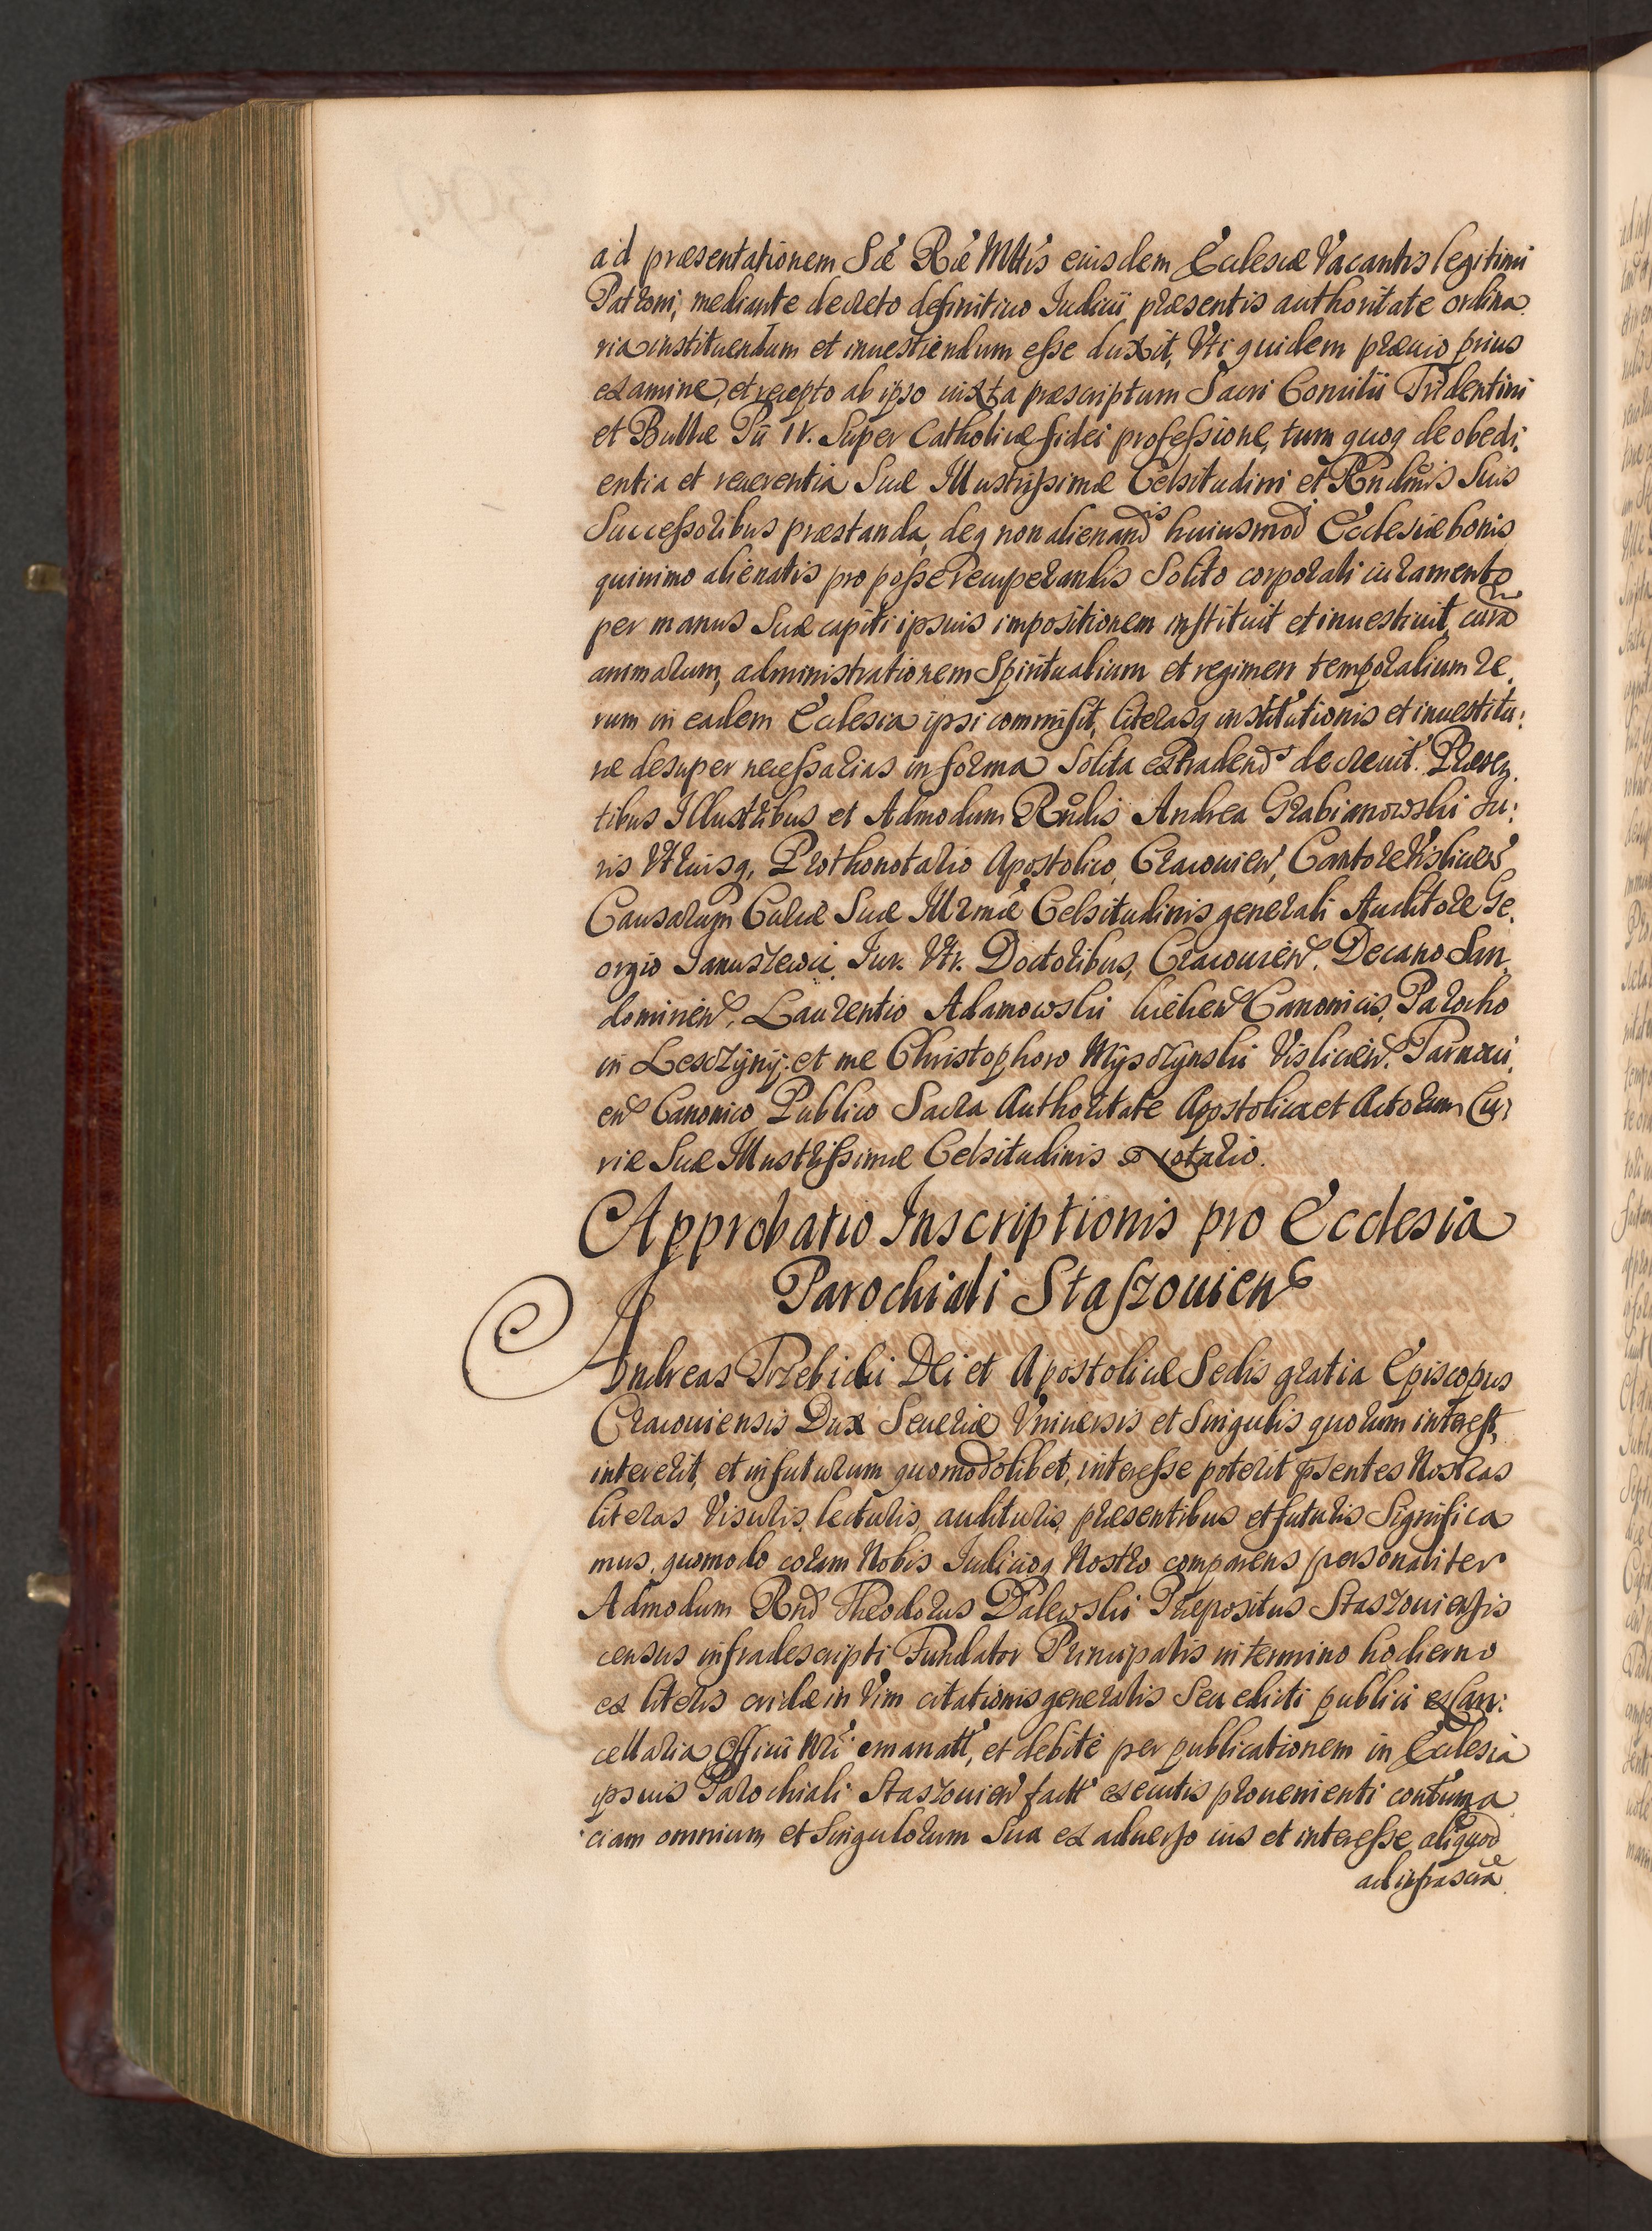 ad præsentationem Sæ Ræ Mttis eiusdem Ecclesiæ Vacantis legitimi
Patroni, mediante decreto definitiuo Iudicii præsentis authoritate ordina
ria instituendum et inuestiendum esse duxit, Vti quidem præuio prius
examine, et recepto ab ipso iuxta præscriptum Sacri Concilii Tridentini
et Bullæ Pii IV. Super Catholicæ fidei professione, tum quoq de obedi:
entia et reuerentia Suæ Illustrissimæ Celsitudini et Rndmis Suis
Successoribus præstanda, deq non alienandis huiusmodi Ecclesiæ bonis
quinimo alienatis pro posse recuperandis Solito corporali iuramento
per manus Suæ capiti ipsius impositionem instituit et inuestiuit, curam
animarum, administrationem Spiritualium et regimen temporalium re
rum in eadem Ecclesia ipsi commisit, literasq institutionis et inuestitu:
ræ desuper necessarias in forma Solita extradend decreuit. Præsen
tibus Illustribus et Admodum Rndis Andrea Grabianowski Iu:
ris Vtriusq, Prothonotario Apostolico, Cracouien, Cantore Visliciens
Causarum Curiæ Suæ Illrmæ Celsitudinis generali Auditore Ge
orgio Januszewic, Iur. Vtr. Doctoribus, Cracouien. Decano San
domirien, Laurentio Adamowski kielcen Canonicis, Parocho
in Lesczyny; et me Christophoro Mysczynski Vislicien. Tarnoui
en Canonico Publico Sacra Authoritate Apostolica et Actorum Cu:
riæ Suæ Illustrissimæ Celsitudinis Notario.
Approbatio Inscriptionis pro Ecclesia
Parochiali Staszouien
Andreas Trzebicki Dei et Apostolicæ Sedis gratia Episcopus
Cracouiensis Dux Seueriæ Vniuersis et Singulis quorum interest,
intererit, et in futurum quomodolibet, interesse poterit psentes Nostras
literas Visuris, lecturis, audituris, præsentibus et futuris Significa
mus, quomodo coram Nobis Iudicioq Nostro comparens personaliter
Admodum Rnd Theodorus Dalewski Præpositus Staszouiensis
census infradescripti Fundator Principalis in termino hodierno
ex literis cridæ in Vim citationis generalis Seu edicti publici ex Can:
cellaria Officii Nri emanatt, et debite per publicationem in Ecclesia
ipsius Parochiali Staszouien factt executis prouenienti contuma
ciam omnium et Singulorum Sua ex aduerso ius et interesse aliquod
ad infrascra